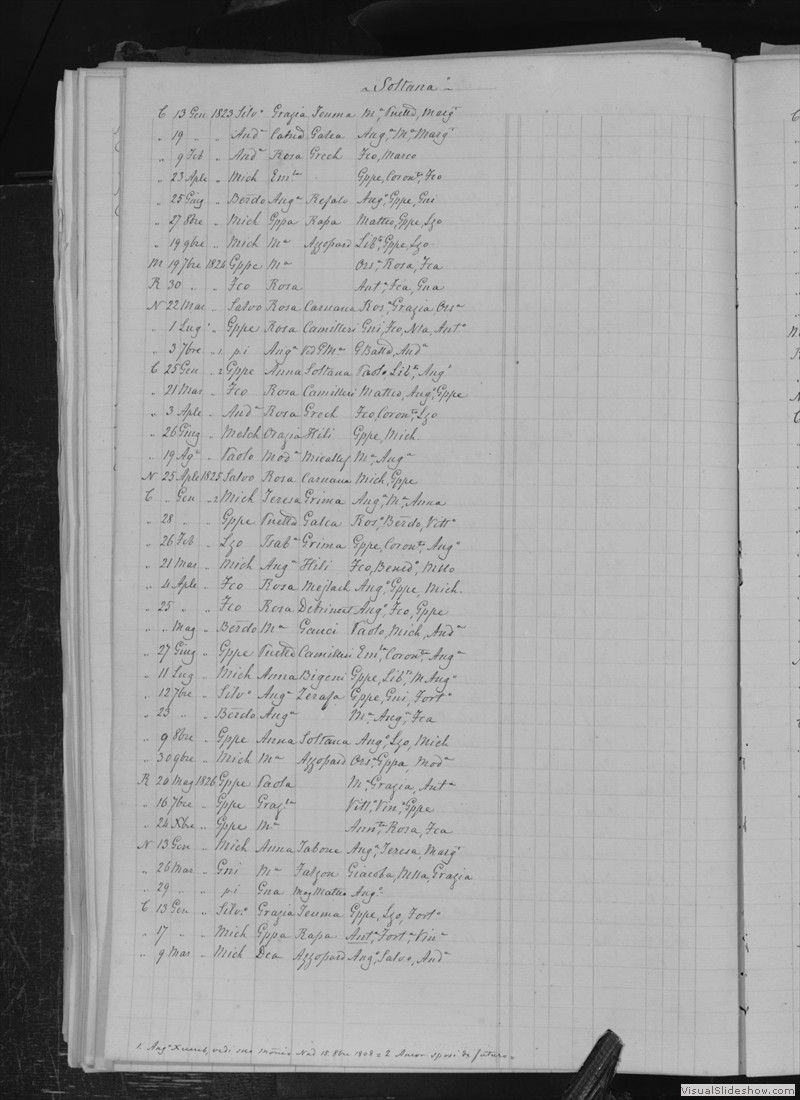 „ Soltana „
C 13 Gen 1823 Silvo Grazia Teuma Ma Vnetta, Margt
„ 19 „ „ Anda Catna Galea Ango Ma Margt
„ 9 Feb „ Anda Rosa Grech Fco, Marco
„ 23 Aple „ Mich Emla Gppe, Coronta, Fco
„ 25 Giug „ Berdo Anga Refalo Ango, Gppe, Gni
„ 27 8bre „ Mich Gppa Rapa Matteo, Gppe, Lzo
„ 19 9bre „ Mich Ma Azzopard Liba, Gppe, Lzo
M 19 7bre 1824 Gppe Ma Orsa, Rosa, Fca
R 30 „ „ Fco Rosa Anta, Fca, Gna
N 22 Mar „ Salvo Rosa Caruana Rosa, Grazia, Orsa
„ 1 Lug „ Gppe Rosa Camilleri Gni, Fco, Nla, Anto
„ 3 7bre „ 1 pi Anga Ved GMa GBatta, Anda
C 25 Gen „ 2 Gppe Anna Soltana Paolo, Liba, Ango
„ 21 Mar „ Fco Rosa Camilleri Matteo, Ango, Gppe
„ 3 Aple „ Anda Rosa Grech Fco, Coronta, Lzo
„ 26 Giug „ Melch Orazia Hili Gppe, Mich
„ 19 Ago „ Paolo Moda Micallef Ma, Anga
N 25 Aple 1825 Salvo Rosa Caruana Mich, Gppe
C „ Gen „ 2 Mich Teresa Grima Ango, Ma, Anna
„ 28 „ „ Gppe Vnetta Galea Roso, Berdo, Vitto
„ 26 Feb „ Lzo Isaba Grima Gppe, Coronta, Ango
„ 21 Mar „ Mich Anga Hili Fco, Bened,
„ 4 Aple „ Fco Rosa Mejlach Ango, Gppe, Mich.
„ 25 „ „ Fco Rosa Ango, Fco, Gppe
„ „ Mag „ Berdo Ma Gauci Paolo, Mich, Anda
„ 27 Giug „ Gppe Vnetta Camilleri Emla, Coronta, Anga
„ 11 Lug „ Mich Anna Bigeni Gppe, Liba, M Anga
„ 12 7bre „ Silvo Anga Zerafa Gppe, Gni, Forto
„ 23 „ „ Berdo Anga Ma, Anga, Fca
„ 9 8bre „ Gppe Anna Soltana Ango, Lzo, Mich
„ 30 9bre „ Mich Ma Azzopard Orsa, Gppa, Moda
R 20 Mag 1826 Gppe Paola Ma, Grazia, Anta
„ 16 7bre „ Gppe Grazla Vitta, Vina, Gppe
„ 24 Xbre „ Gppe Ma Annta, Rosa, Fca
N 13 Gen „ Mich Anna Tabone Anga, Teresa, Margt
„ 26 Mar „ Gni Ma Falzon Giacoba, Mlla, Grazia
„ 29 „ „ pi Gna mog Matteo Ango
C 13 Gen „ Silvo Grazia Teuma Gppe, Lzo, Forto
„ 17 „ „ Mich Gppa Rapa Anta, Forta, Vina
„ 9 Mar „ Mich Dea Azzopard Ango, Salvo, Anda
1. Anga Xuereb, vedi suo Nad 18. 8bre 1808 = 2 Ancor sposi de futuro =
VisualSlideshow.com